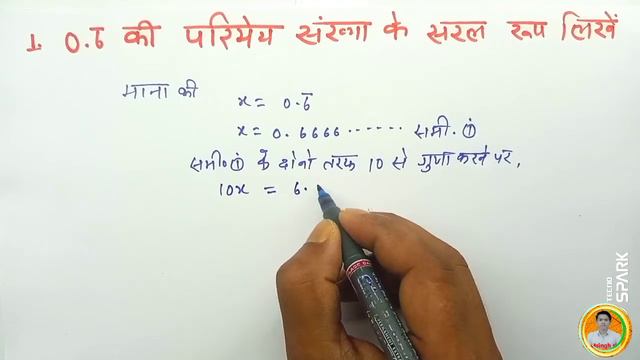 1. 0.6̅ की परिमेय संख्या के सरल रूप लिखें
माना की
x = 0.6̅
x = 0.6666...... समी. ①
समी० ① के दोनो तरफ 10 से गुणा करने पर,
10x = 6.
TECNO
SPARK